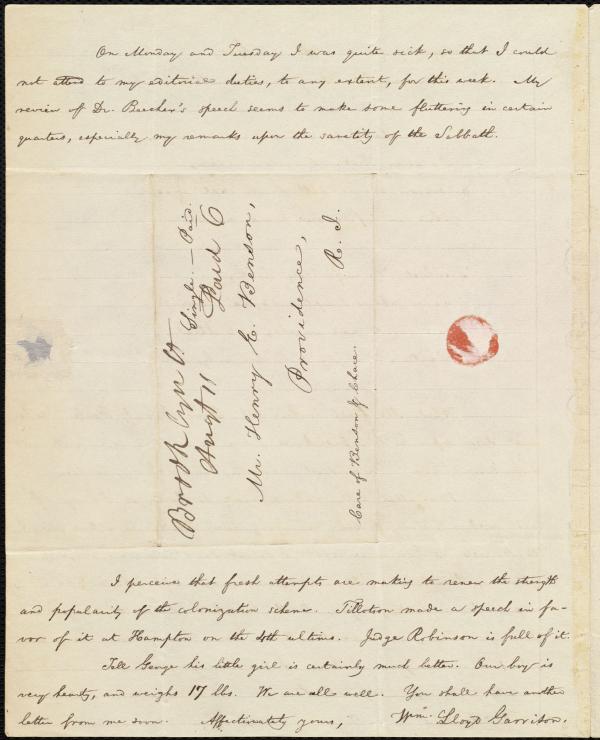 On Monday and Tuesday I was quite sick, so that I could
not attend to my editorial duties, to any extent, for this week. My
review of Dr. Beecher's speech seems to make some fluttering in certain
quarters, especially my remarks upon the sanctity of the Sabbath.
Brooklyn Ct.
Augt 11
Single.—Paid.
Paid 6
Mr. Henry E. Benson,
Providence,
R. I.
Care of Benson & Chace.
I perceive that fresh attempts are making to renew the strength
and popularity of the colonization scheme. Tillotson made a speech in fa-
vor of it at Hampton on the 4th ultimo. Judge Robinson is full of it.
Tell George his little girl is certainly much better. Our boy is
very hearty, and weighs 17 lbs. We are all well. You shall have another
letter from me soon. Affectionately yours, Wm. Lloyd Garrison.